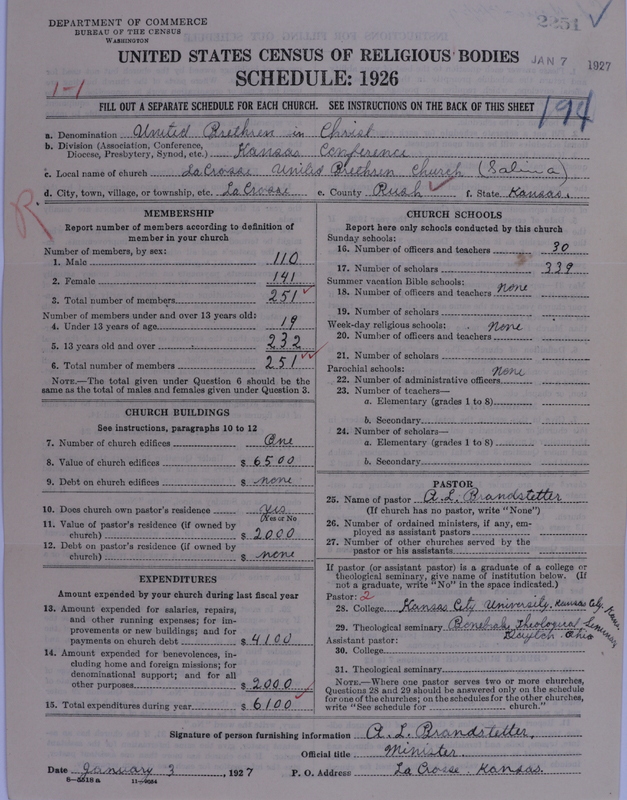 DEPARTMENT OF COMMERCE
BUREAU OF THE CENSUS
WASHINGTON
2251
UNITED STATES CENSUS OF RELIGIOUS BODIES
JAN 7 1927
SCHEDULE: 1926
1-1
FILL OUT A SEPARATE SCHEDULE FOR EACH CHURCH. SEE INSTRUCTIONS ON THE BACK OF THIS SHEET
194
a. Denomination United Brethren in Christ
b. Division (Association, Conference,
Diocese, Presbytery, Synod, etc.) Kansas Conference
c. Local name of church LaCrosse United Brethren Church (Salina)
d. City, town, village, or township, etc. LaCrosse e. County Rush f. State Kansas.
R
MEMBERSHIP
Report number of members according to definition of
member in your church
Number of members, by sex:
1. Male 110
2. Female 141
3. Total number of members 251
Number of members under and over 13 years old:
4. Under 13 years of age 19
5. 13 years old and over 232
6. Total number of members 251
NOTE.—The total given under Question 6 should be
same as the total of males and females given under Question 3.
CHURCH BUILDINGS
See instructions, paragraphs 10 to 12
7. Number of church edifices One
8. Value of church edifices $ 6500
9. Debt on church edifices $ none
10. Does church own pastor's residence yes
(Yes or No
11. Value of pastor's residence (if owned by
church) $ 2000
12. Debt on pastor's residence (if owned by
church) $ none
EXPENDITURES
Amount expended by your church during last fiscal year
13. Amount expended for salaries, repairs,
and other running expenses; for im-
provements or new buildings; and for
payments on church debt $ 4100
14. Amount expended for benevolences, in-
cluding home and foreign missions; for
denominational support; and for all
other purposes $ 2000
15. Total expenditures during year $ 6100
CHURCH SCHOOLS
Report here only schools conducted by this church
Sunday schools:
16. Number of officers and teachers 30
17. Number of scholars 339
Summer vacation Bible schools:
18. Number of officers and teachers none
19. Number of scholars
Week-day religious schools: none
20. Number of officers and teachers
21. Number of scholars
Parochial schools: none
22. Number of administrative officers
23. Number of teachers—
a. Elementary (grades 1 to 8)
b. Secondary
24. Number of scholars—
a. Elementary (grades 1 to 8)
b. Secondary
PASTOR
25. Name of pastor A.L. Brandstetter
(If church has no pastor, write "None")
26. Number of ordained ministers, if any, em-
ployed as assistant pastors
27. Number of other churches served by the
pastor or his assistants
If pastor (or assistant pastor) is a graduate of a college or
theological seminary, give name of institution below. (If
not a graduate, write "No" in the space indicated.)
Pastor: 2
28. College Kansas City University, Kansas City, Kans.
29. Theological seminary Bonebrake Theological Seminary
Dayton Ohio
Assistant pastor:
30. College
31. Theological seminary
NOTE.—Where one pastor serves two or more churches,
Questions 28 and 29 should be answered only on the schedule
for one of the churches; on the schedules for the other churches,
write "See schedule for ____ church."
Signature of person furnishing information A. L. Brandstetter,
Official title Minister.
Date January 3, 1927 P. O. Address La Crosse, Kansas.